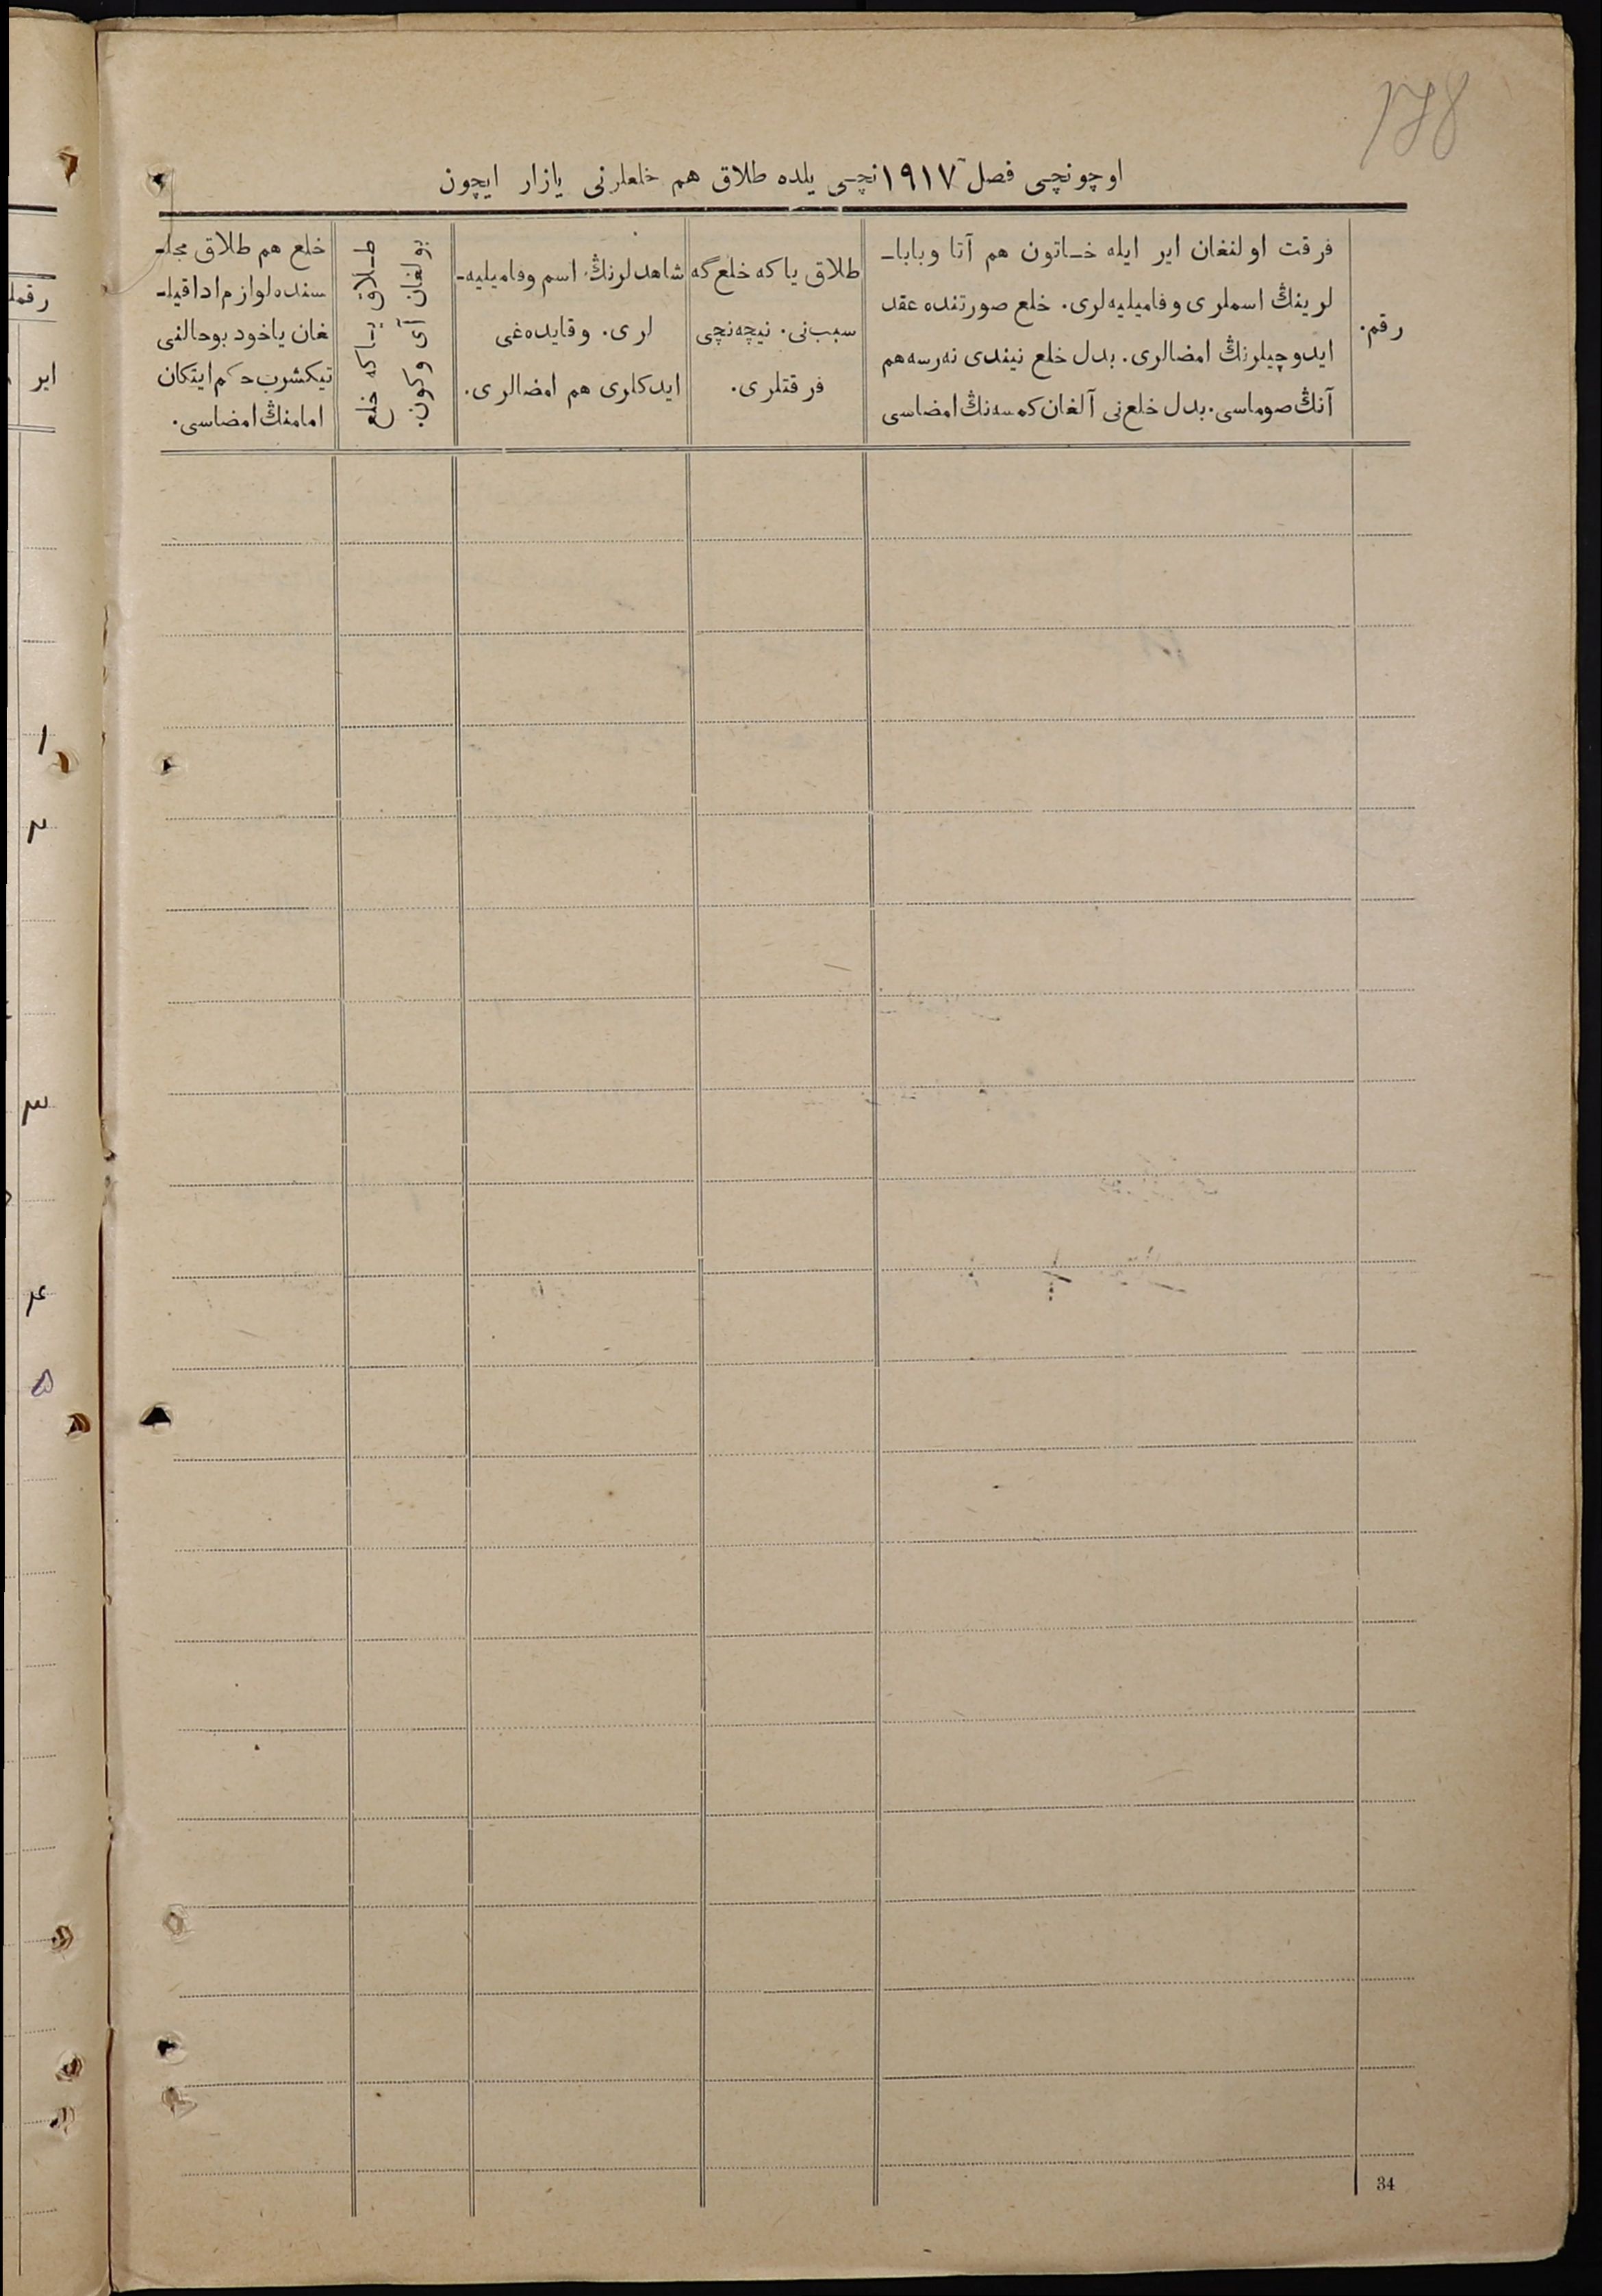 178
اوچونچی فصل ١٩١٧نچی یلده طلاق هم خلعلرنی یازار ایچون
رقم.
فرقت اولنغان ایر ایله خاتون هم آتا وباباـ
لرینڭ اسملری وفامیلیه‌لری. خلع صورتنده عقد
ایدوچیلرنڭ امضالری. بدل خلع نیندی نه‌رسه هم
آنڭ صوماسی. بدل خلع‌نی آلغان کمسه‌نڭ امضاسی
طلاق یاکه خلع‌گه
سبب‌نی. نیچه‌نچی
فرقتلری.
شاهدلرنڭ اسم وفامیلیه‌ـ
لری. وقایده‌غی
ایدکلری هم امضالری.
طلاق یاکه خلع
بولغان آی وکون.
خلع هم طلاق مجلـ
سنده لوازم ادا قیلـ
غان یاخود بوحالنی
تیکشرب حکم ایتکان
امامنڭ امضاسی.
34
رقملـ
ایر
١
٢
٣
۴
۵